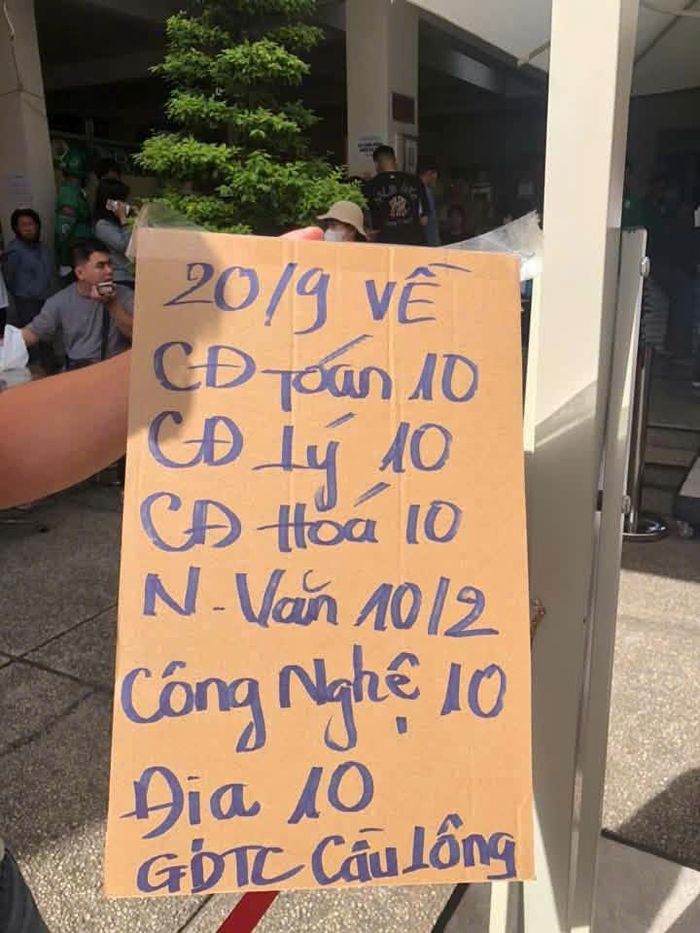 20/9 VỀ
CĐ Toán 10
CĐ Lý 10
CĐ Hoá 10
N-Văn 10/2
Công Nghệ 10
Địa 10
GDTC Cầu lông